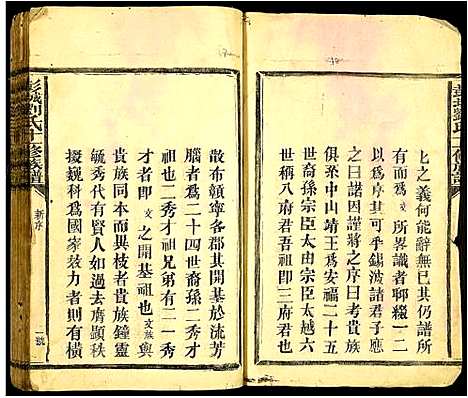 上之義何能辭無已其仍譜所
有而爲文所畧識者聊綴一二
以爲序其可乎錫波諸君子應
之曰諾因謹將之序曰考貴族
俱系中山靖王爲安福二十五
世裔孫宗臣太由宗臣太越六
世稱八府君吾祖即三府君也
散布贛寧各郡其開基於流芳
腦者爲二十四世裔孫二秀才
祖也二秀才祖兄弟有二一秀
才者即文之開基祖也文族與
貴族同本而異枝者貴族鐘靈
毓秀代有賢人如過去膺顯秩
掇巍科爲國家效力者則有橫
彭城劉氏十修族譜
新序
一號